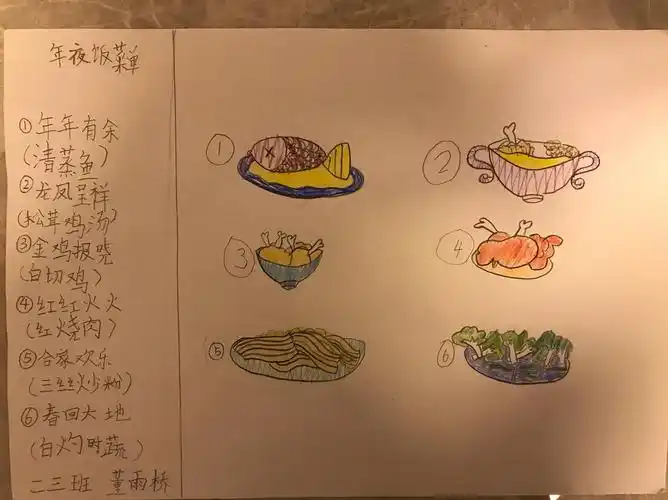 年夜饭菜单
①年年有余
(清蒸鱼)
②龙凤呈祥
(松茸鸡汤)
③金鸡报晓
(白切鸡)
④红红火火
(红烧肉)
⑤合家欢乐
(三丝炒粉)
⑥春回大地
(白灼时蔬)
二三班 董雨桥
① ②
③ ④
⑤ ⑥